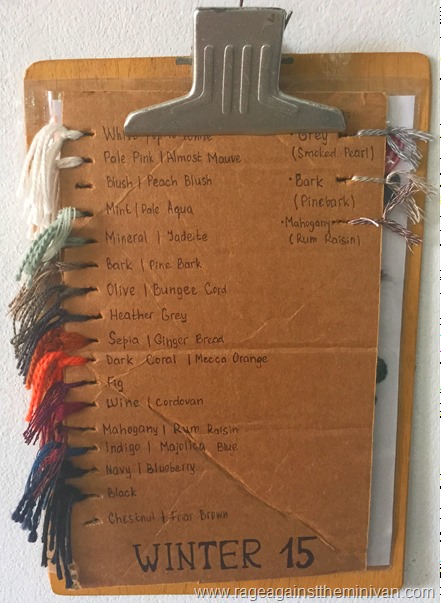 White |
Pale Pink | Almost Mauve
Blush | Peach Blush
Mint | Pale Aqua
Mineral | Jadeite
Bark | Pine Bark
Olive | Bungee Cord
Heather Grey
Sepia | Ginger Bread
Dark Coral | Mecca Orange
Fig
Wine | Cordovan
Mahogany | Rum Raisin
Indigo | Majolica Blue
Navy | Blueberry
Black
Chestnut | Friar Brown
• Grey
(Smoked Pearl)
• Bark
(Pinebark)
• Mahogany
(Rum Raisin)
WINTER 15
www.rageagainsttheminivan.com